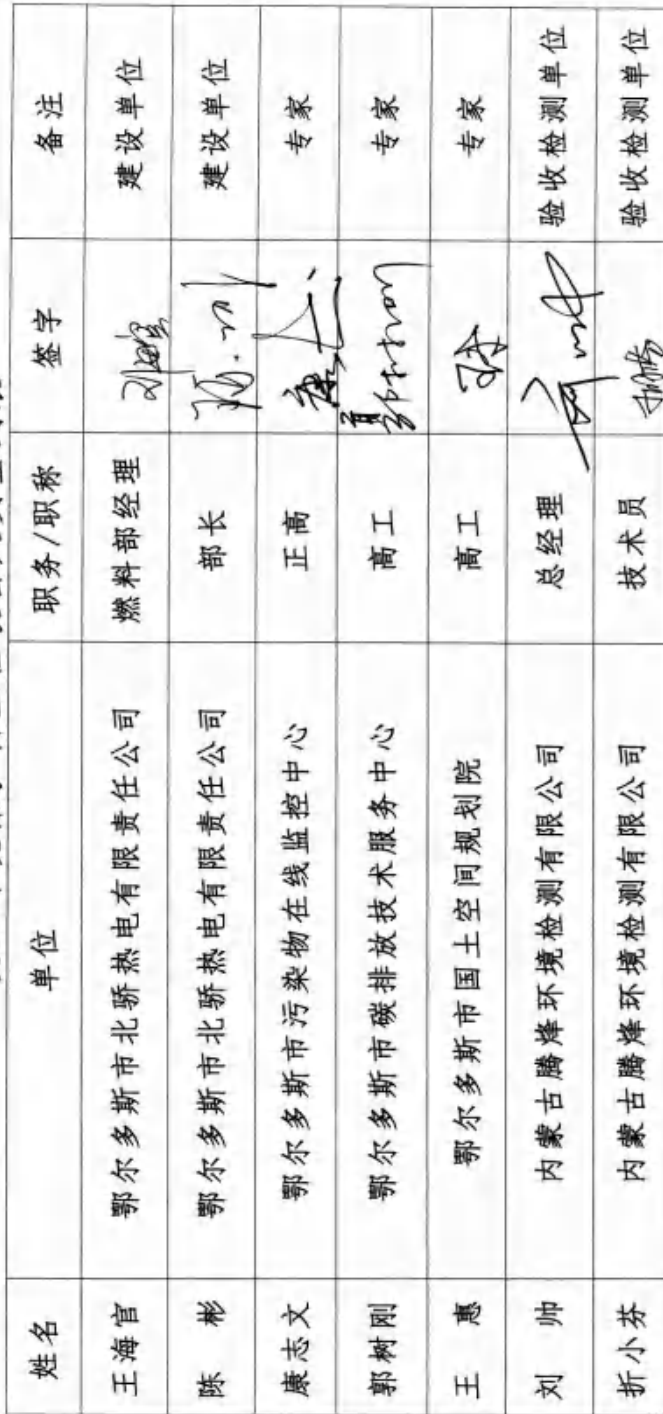 姓名 单位 职务/职称 签字 备注
王海官 鄂尔多斯市北骄热电有限责任公司 燃料部经理 建设单位
陈 彬 鄂尔多斯市北骄热电有限责任公司 部长 建设单位
康志文 鄂尔多斯市污染物在线监控中心 正高 专家
郭树刚 鄂尔多斯市碳排放技术服务中心 高工 专家
王 惠 鄂尔多斯市国土空间规划院 高工 专家
刘 帅 内蒙古腾烽环境检测有限公司 总经理 验收检测单位
折小芬 内蒙古腾烽环境检测有限公司 技术员 验收检测单位